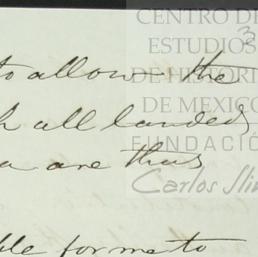 CENTRO DE
ESTUDIOS
DE HISTORIA
DE MEXICO
FUNDACIÓN
Carlos Slim
3
to allow the
h all landed
a are thus
ble for me to